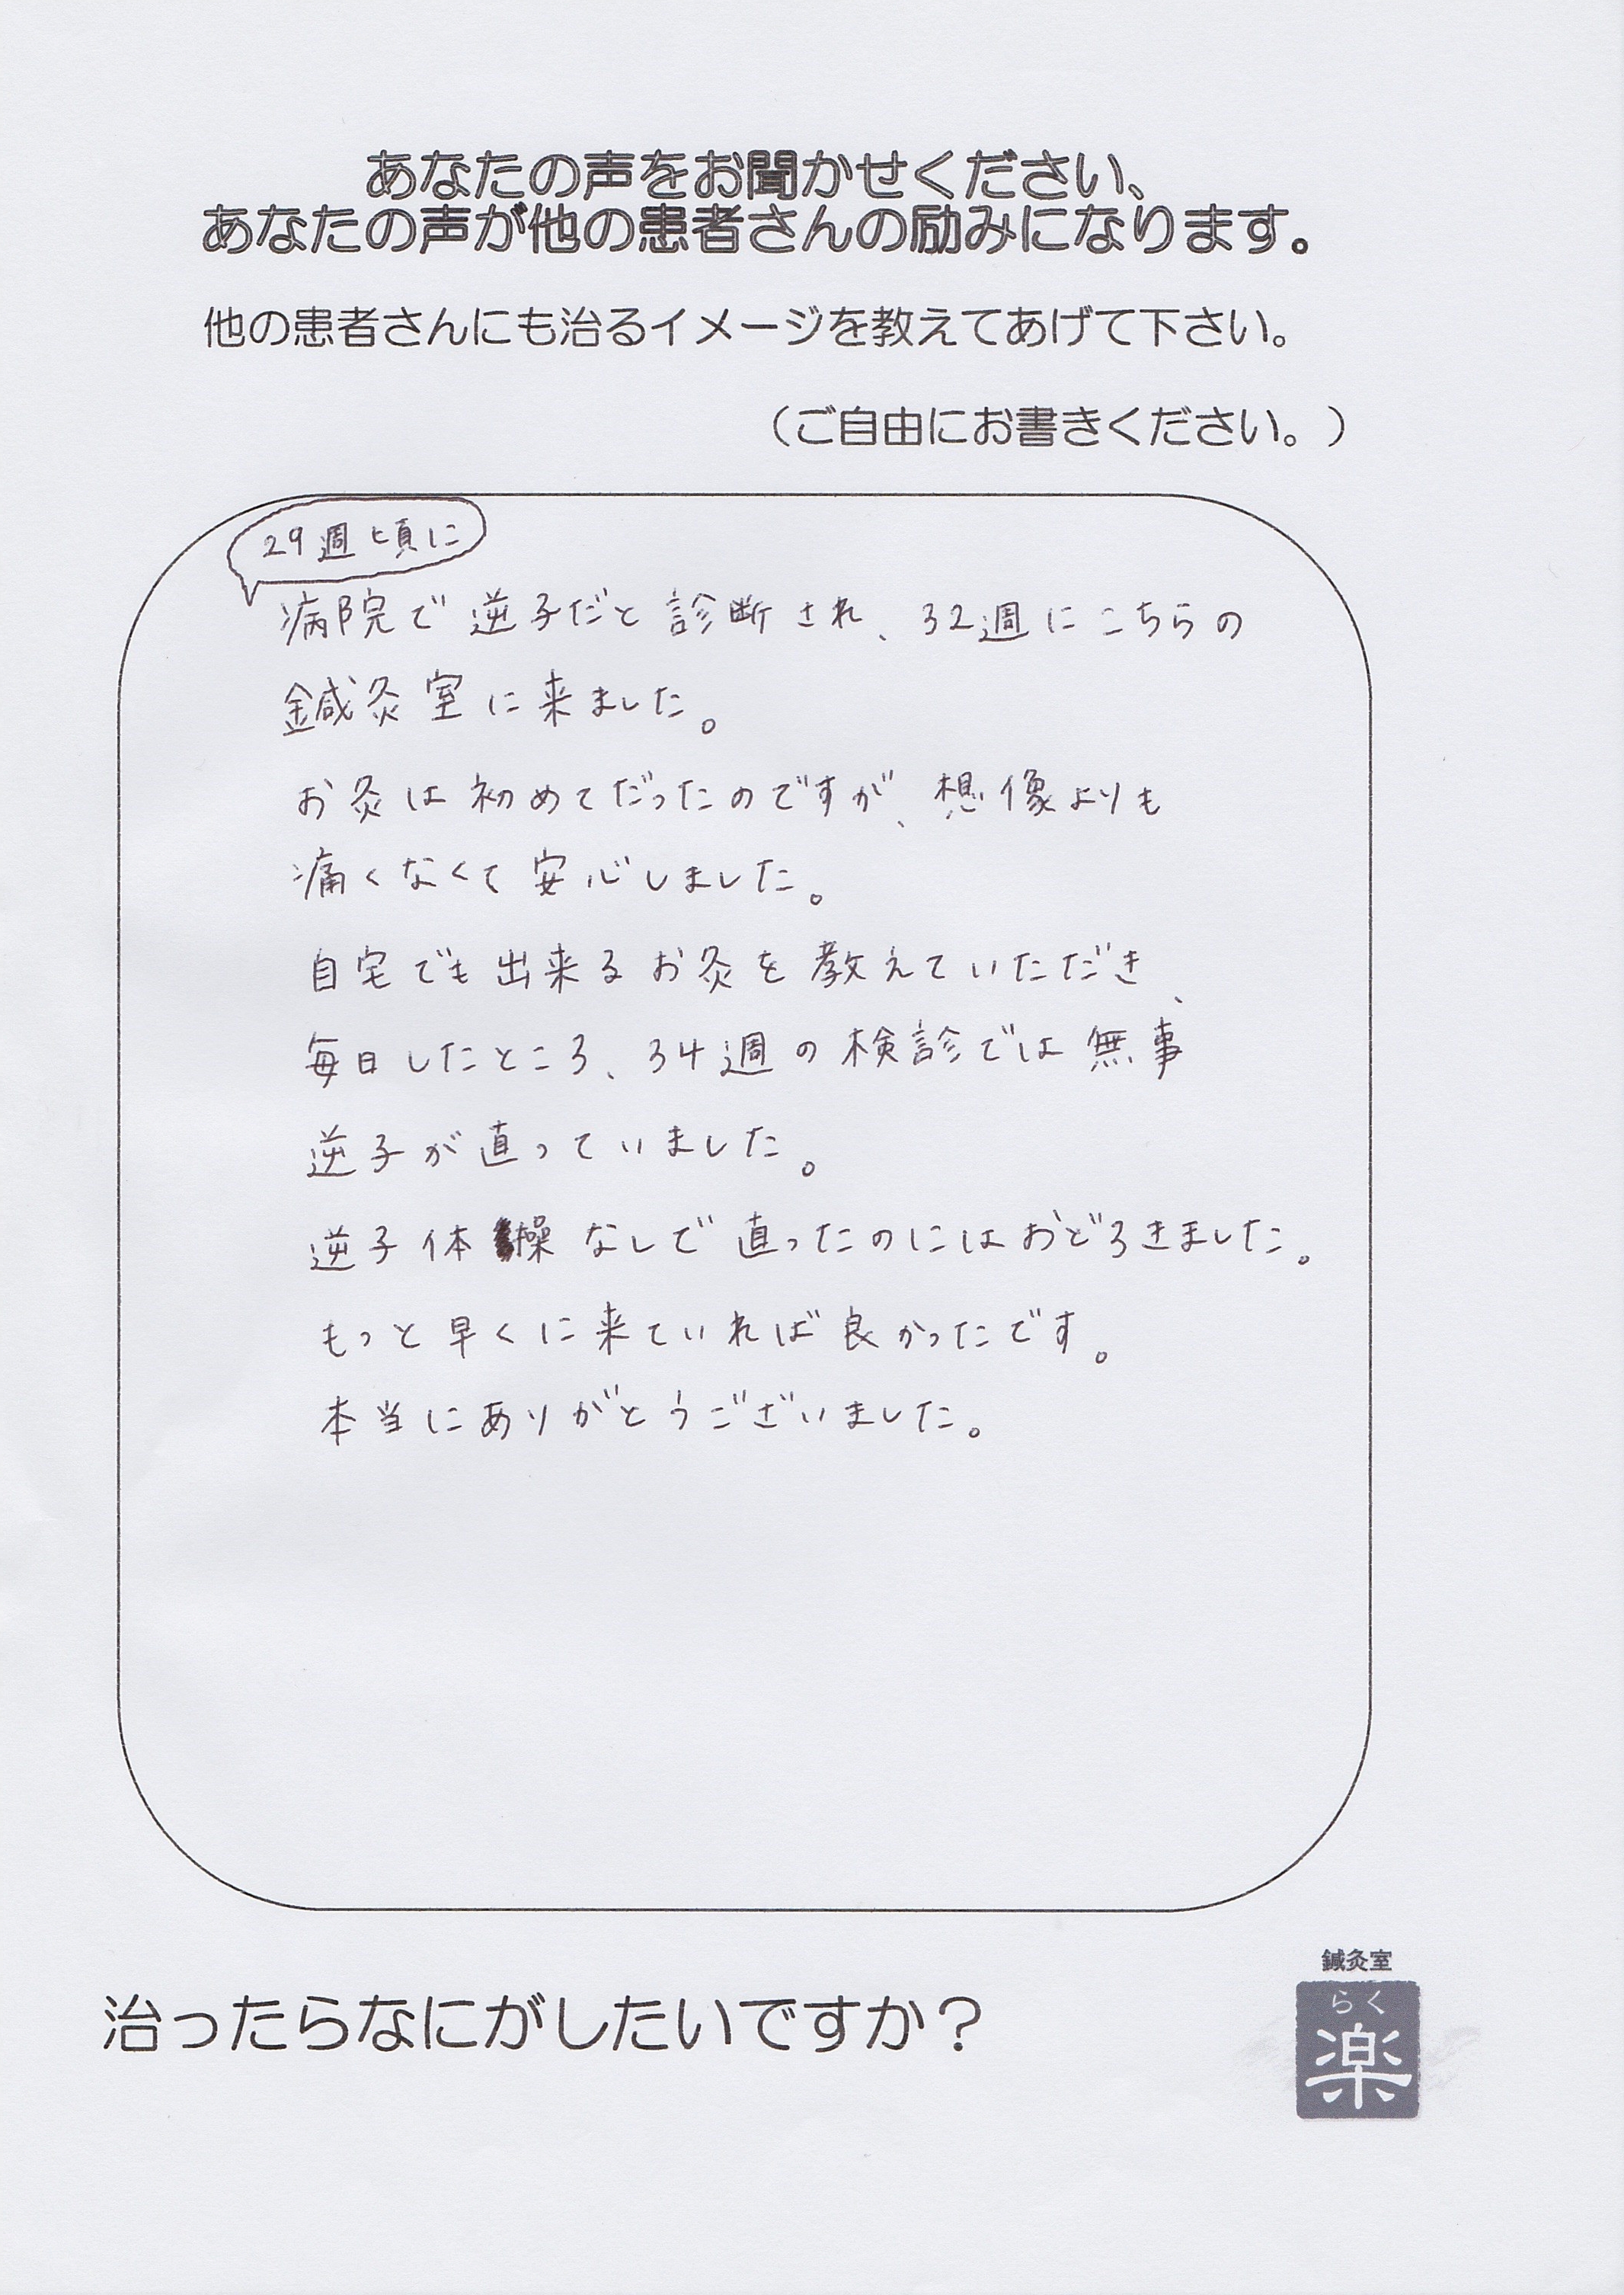 あなたの声をお聞かせください、
あなたの声が他の患者さんの励みになります。
他の患者さんにも治るイメージを教えてあげて下さい。
（ご自由にお書きください。）
29週頃に
病院で逆子だと診断され、32週にこちらの
鍼灸室に来ました。
お灸は初めてだったのですが、想像よりも
痛くなくて安心しました。
自宅でも出来るお灸を教えていただき、
毎日したところ、34週の検診では無事
逆子が直っていました。
逆子体操なしで直ったのにはおどろきました。
もっと早くに来ていれば良かったです。
本当にありがとうございました。
治ったらなにがしたいですか？
鍼灸室
らく
楽